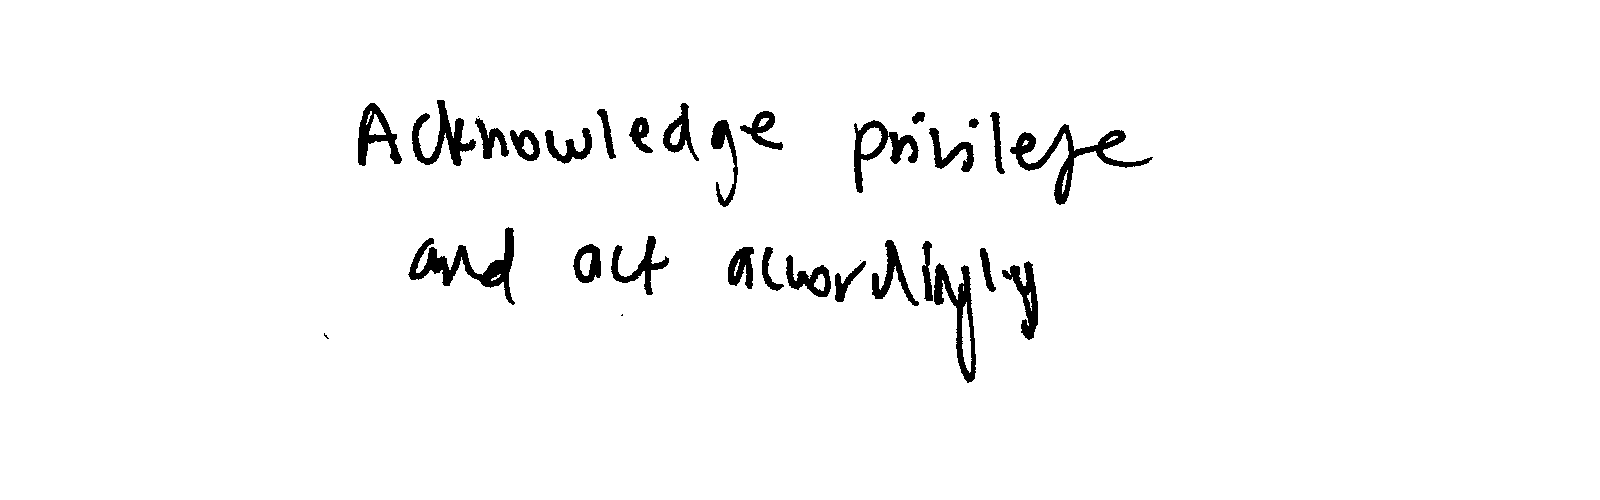 Acknowledge privilege
and act accordingly